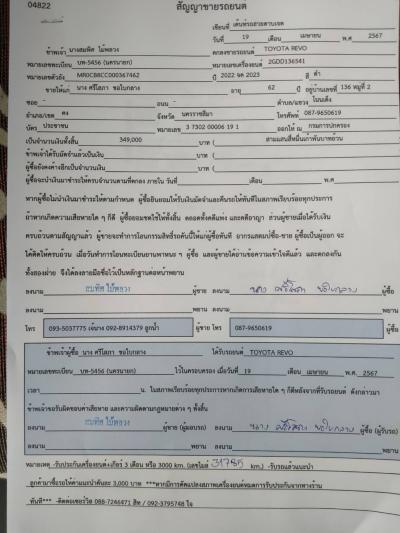 04822
สัญญาขายรถยนต์
เขียนที่ เต็นท์รถสวยตามเจต
วันที่ 19 เดือน เมษายน พ.ศ. 2567
ข้าพเจ้า นางสมพิศ ไม้พลวง ตกลงขายรถยนต์ TOYOTA REVO
หมายเลขทะเบียน บพ-5456 (นครนายก) หมายเลขเครื่องยนต์ 2GDD136541
หมายเลขตัวถัง MR0CB8CC000367462 ปี 2022 จด 2023 สี ดำ
ขายให้แก่ นาง ศรีโสภา ขอใบกลาง อายุ 62 ปี อยู่บ้านเลขที่ 136 หมู่ที่ 2
ซอย - ถนน - ตำบล/แขวง โนนเต็ง
อำเภอ/เขต คง จังหวัด นครราชสีมา โทรศัพท์ 087-9650619
บัตร ประชาชน หมายเลข 3 7302 00006 19 1 ออกให้ ณ กรมการปกครอง
เป็นจำนวนเงินทั้งสิ้น 349,000 บาท ( สามแสนสี่หมื่นเก้าพันบาทถ้วน )
ข้าพเจ้าได้รับมัดจำแล้วเป็นเงิน บาท ( )
ผู้ซื้อยังคงค้างอีกเป็นจำนวนเงิน บาท ( )
ผู้ซื้อจะนำเงินมาชำระให้ครบจำนวนตามที่ตกลง ภายใน วันที่ เดือน พ.ศ.
หากผู้ซื้อไม่นำเงินมาชำระให้ตามกำหนด ผู้ซื้อยินยอมให้ริบเงินมัดจำและคืนรถให้ทันทีในสภาพเรียบร้อยทุกประการ
ถ้าหากเกิดความเสียหายใด ๆ ก็ดี ผู้ซื้อยอมชดใช้ให้ทั้งสิ้น ตลอดทั้งคดีแพ่ง และคดีอาญา ส่วนผู้ขายเมื่อได้รับเงิน
ครบถ้วนตามสัญญาแล้ว ผู้ขายจะทำการโอนกรรมสิทธิ์รถคันนี้ให้แก่ผู้ซื้อทันที อากรแสตมป์ซื้อ-ขาย ผู้ซื้อเป็นผู้ออก จะ
ได้คิดให้ครบถ้วน เมื่อวันทำการโอนทะเบียนยานพาหนะ ฯ ผู้ซื้อ และผู้ขายได้อ่านข้อความเข้าใจดีแล้ว และตกลงกัน
ทั้งสองฝ่าย จึงได้ลงลายมือชื่อไว้เป็นหลักฐานต่อหน้าพยาน
ลงนาม สมพิศ ไม้พลวง ผู้ขาย ลงนาม นาง ศรีโสภา ขอใบกลาง ผู้ซื้อ
ลงนาม พยาน ลงนาม พยาน
โทร 093-5037775 เจ้นาง 092-8914379 ลูกน้ำ ผู้ขาย โทร 087-9650619 ผู้ซื้อ
ข้าพเจ้าผู้ซื้อ นาง ศรีโสภา ขอใบกลาง ได้รับรถยนต์ TOYOTA REVO
หมายเลขทะเบียน บพ-5456 (นครนายก) ไว้ในครอบครอง เมื่อวันที่ 19 เดือน เมษายน พ.ศ. 2567
เวลา น. ในสภาพเรียบร้อยทุกประการหากเกิดการเสียหายใด ๆ ก็ดีหลังจากที่รับรถยนต์ ดังกล่าวมา
ข้าพเจ้าขอรับผิดชอบค่าเสียหาย และความผิดตามกฎหมายต่าง ๆ ทั้งสิ้น
ลงนาม สมพิศ ไม้พลวง ผู้ขาย (ผู้มอบรถ) ลงนาม นาง ศรีโสภา ขอใบกลาง ผู้ซื้อ (ผู้รับรถ)
ลงนาม พยาน ลงนาม พยาน
หมายเหตุ -รับประกันเครื่องยนต์+เกียร์ 3 เดือน หรือ 3000 km. (เลขไมล์ 31785 km.) -รับรถแล้วแนะนำ
ลูกค้ามาซื้อรถให้ค่าแนะนำคันละ 3,000 บาท ***หากมีการดัดแปลงสภาพเครื่องยนต์หมดการรับประกันจากทางร้าน
ทันที*** -ติดต่อเซอร์วิส 088-7246471 สิท / 092-3795748 ใจ